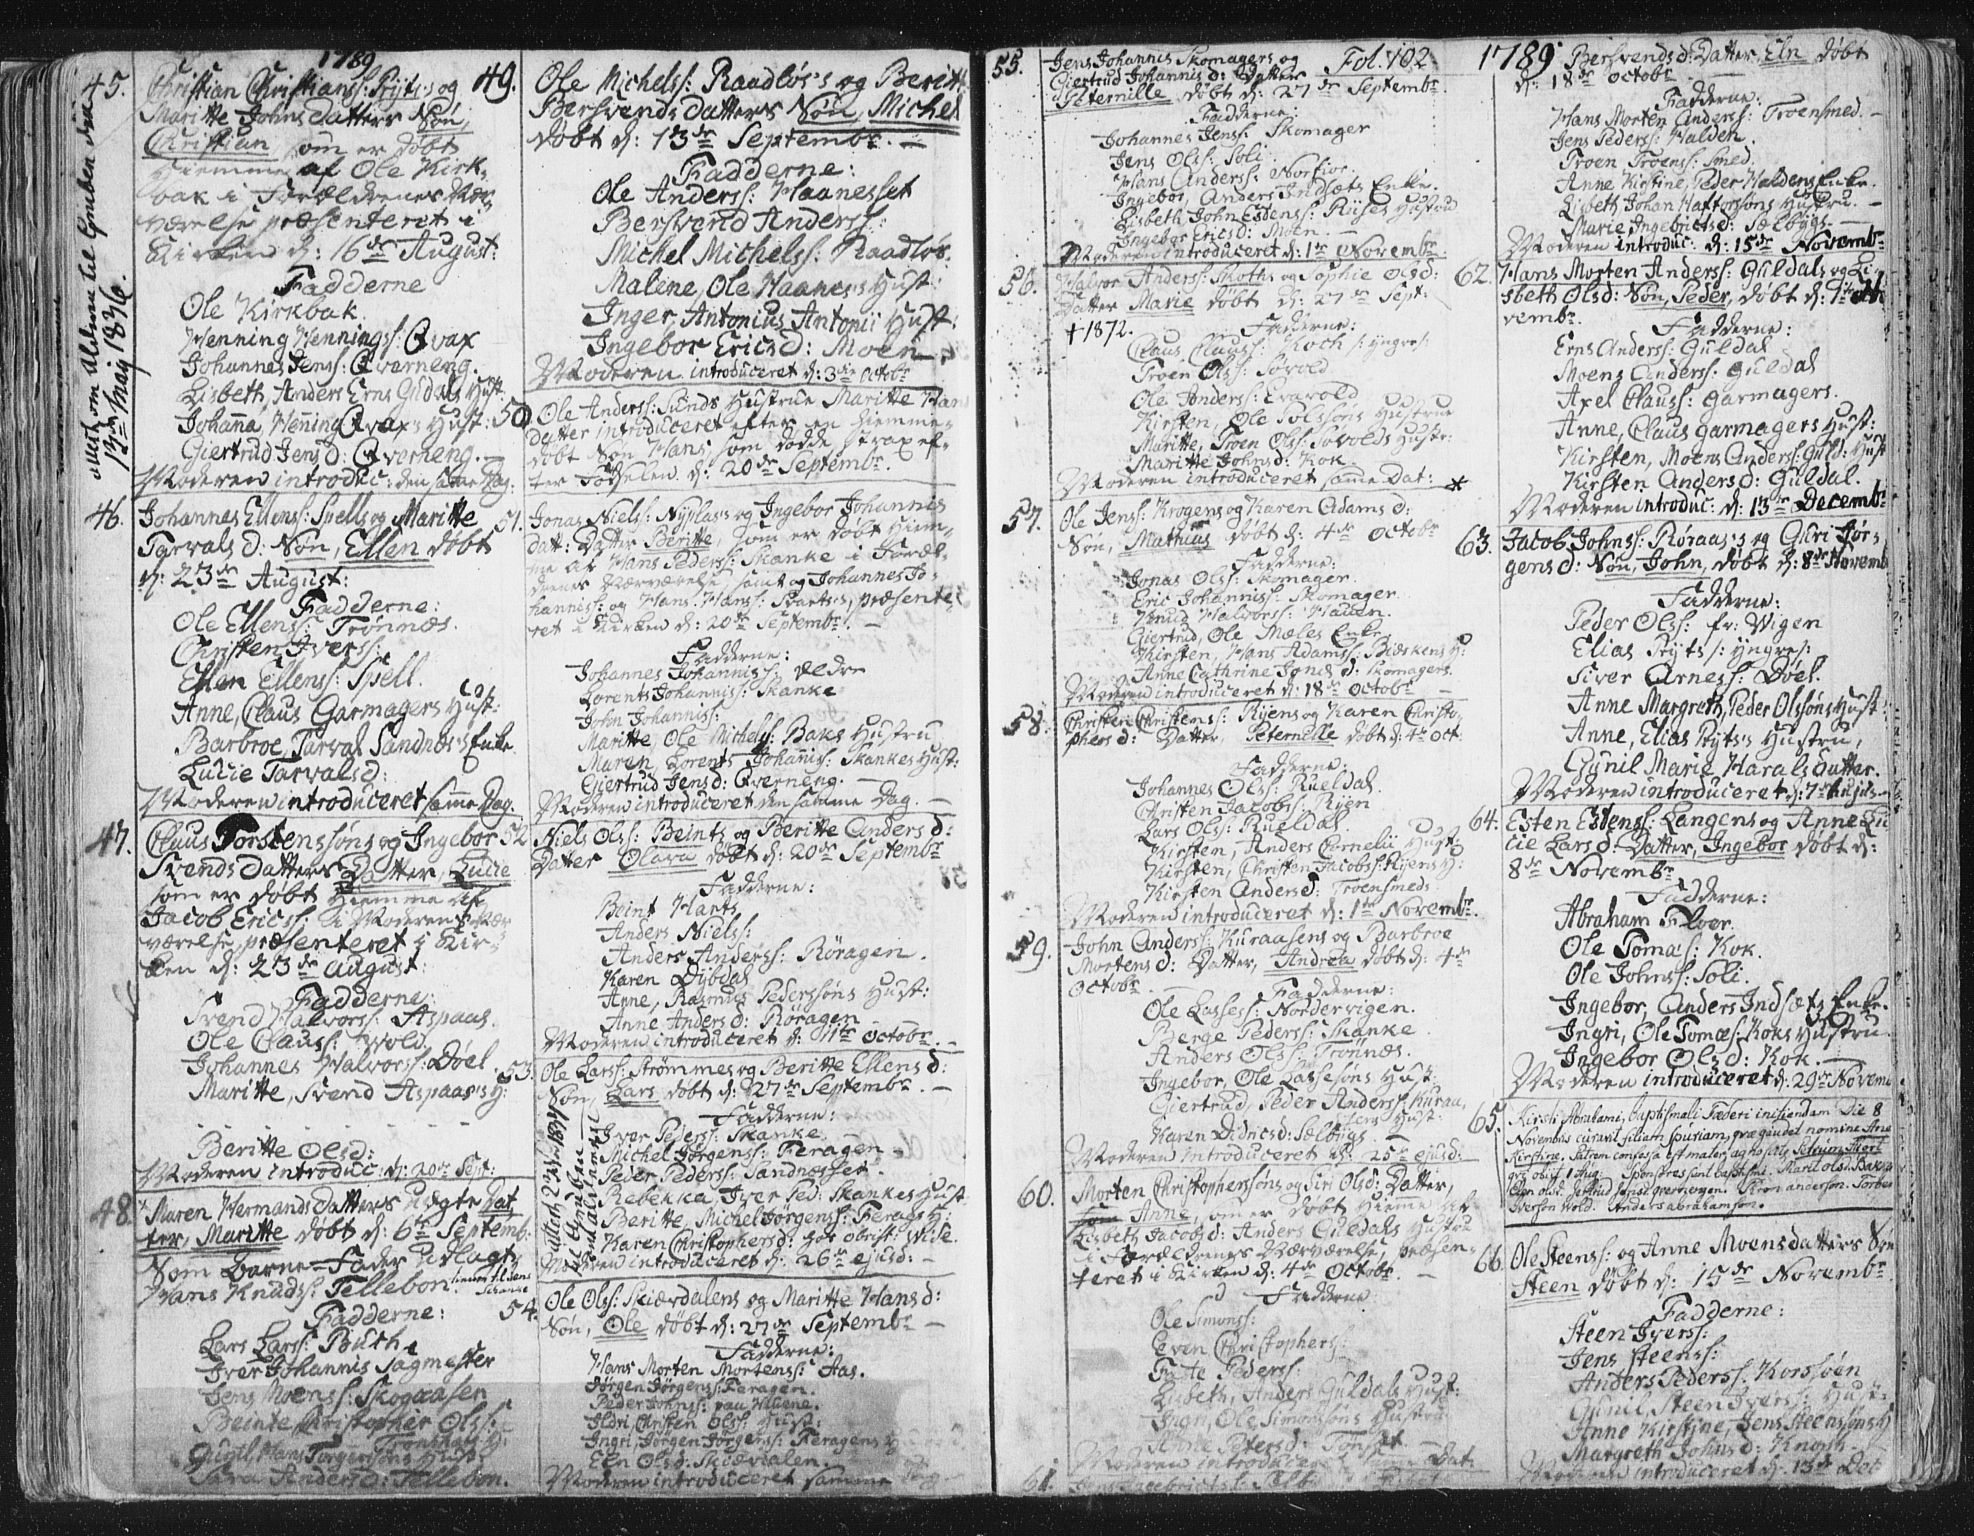 1789
45. Christian Christians: Pryts's og
Maritte Johns datters Søn,
Christian som er døbt
hiemme af Ole Kirk-
bak i Forældrenes Nær
værelse præsenteret i
Kirken d: 16de August:
Fadderne
Ole Kirkbak
Henning Hennings: Qvax
Johannes Jens: Qverneng.
Lisbeth, Anders Erns Guldals Hust.
Johana, Hening Qvax's Hust:
Giertrud Jensd: Qverneng.
Moderen introduc: den samme Dag.
46. Johannes Ellens: Spells og Maritte
Tarvalsd: Søn, Ellen døbt
d: 23de August:
Fadderne:
Ole Ellens: Trønnæs.
Christen Ivers:
Ellen Ellens: Spell.
Anne, Claus Garmagers Hust:
Barbroe, Tarval Sandnæs's Enke
Lucie Tarvalsd:
Moderen introduceret samme Dag.
47. Claus Torstenssøns og Ingebor
Svends datters Datter, Lucie
som er døbt hiemme af
Jacob Erics: i Moderens Nær
værelse, præsenteret i Kir-
ken d: 23de august:
Fadderne:
Svend Halvors: Aspaas.
Ole Claus: Wold.
Johannes Halvors: Døel
Maritte, Svend Aspaas's H:
Beritte Olsd:
Moderen introduc: d: 20de Sept:
48. Maren Hermands datters uægte Dat
ter, Maritte døbt d: 6te Septemb:
Som Barne-Fader Udlagt
Hans Knuds: Tellebon.
Fadderne:
Lars Lars: Buth
Iver Johannis Sagmester
Jens Moens: Skogaasen
Beinte Christopher Ols:
Sara Andersd: Tellebon.
49. Ole Michels: Raadløs's og Beritte
Bersvends datters Søn, Michel
døbt d: 13de Septembr.
Fadderne:
Ole Anders: Haanesset
Bersvend Anders:
Michel Michels: Raadløs.
Maline, Ole Haanes's Hust:
Inger, Antonius Antonii Hust:
Ingebor Ericsd: Moen
Moderen introduceret d: 3die Octobr
50. Ole Anders: Sunds Hustrue Maritte Hans
datter introduceret efter en hiemme-
døbt Søn Hans, som døde strax ef-
ter Fødselen d: 20de Septembr.
51. Jonas Niels: Nyplas's og Ingebor Johannis
datt: Datter Beritte, som er døbt hiem-
me af Hans Peders: Skanke i Foræl-
drenes Nærværelse, samt og Johannes Jo-
hannis: og Hans Hans: Svarts's, præsente-
ret i Kirken d: 20de Septembr.
Fadderne:
Johannes Johannis: ældre
Lorents Johannis: Skanke
John Johannis:
Maritte, Ole Michels: Baks Hustru
Maren, Lorents Johannis: Skankes Hust:
Giertrud Jensd: Qverneng.
Moderen introduceret den samme Dag.
52. Niels Ols: Beints og Beritte Andersd:
Datter Olava døbt d: 20de Septembr
Fadderne:
Beint Hants
Anders Niels:
Anders Anders: Røragen.
Karen Dybdal
Anne, Rasmus Pederssøns Hust:
Anne Andersd: Røragen
Moderen introduceret d: 11te Octobr.
53. Ole Lars: Strømmes og Beritte Ellensd:
Søn, Lars døbt d: 27de Septembr.
Fadderne:
Iver Peders: Skanke.
Michel Jørgens: Feragen
Peder Peders: Sandnæsset.
Rebekka Iver Ped: Skankes Hust
Beritte, Michel Jørgens: Ferags H:
Karen Christophersd: hos Obrist: Wise.
Moderen introduceret d: 26de ejusd:
54. Ole Ols: Skiærdalens og Maritte Hansd:
Søn, Ole døbt d: 27de Septembr
Fadderne:
Hans Morten Mortens: Aas.
Jørgen Jørgens: Feragen.
Peder Johns: paa Volene.
Ildri Christen Ols: Hust:
Ingri, Jørgen Jørgens: Feragens H
Eln Olsd: Skiærdalen.
Moderen introduceret samme
55. Jens Johannis Skomagers og
Giertrud Johannisd: Datter
Peternille døbt d: 27de Septembr.
Fol. 102
Fadderne
Johannes Jens: Skomager
Jens Ols: Soli
Hans Anders: Norfior.
Ingebor, Anders Indsæts Enke.
Lisbeth John Estens: Riises Hustru
Ingebor Ericsd: Moen.
Moderen introduceret d: 1te Novembr.
56. Halvor Anders: Skoths og Sophie Olsd:
Datter Marie døbt d: 27de Sept:
†1872.
Fadderne:
Claus Claus: Koch /: yngre/:
Troen Ols: Sovold
Ole Anders: Evavold
Kirsten, Ole Jolssøns Hustrue
Maritte, Troen Ols: Sovolds Hustr:
Maritte Johnsd: Kok.
Moderen introduceret samme Dat:
57. Ole Jens: Krogens og Karen Adamsd:
Søn, Mathias døbt d: 4de Octobr
Fadderne:
Jonas Ols: Skomager.
Eric Johannis: Skomager
Knud Halvors: Hauen.
Giertrud, Ole Mæles Enke
Kirsten, Hans Adams: Biøskens H:
Anne Cathrine Jonæd: Skomagers
Moderen introduceret d: 18de Octobr
58. Christen Christens: Ryens og Karen Christo-
phersd: Datter, Peternille døbt d: 4de Oct:
Fadderne:
Johannes Ols: Rueldal
Christen Jacobs: Ryen
Lars Ols: Rueldal.
Kirsten, Anders Cornelii Hust:
Kirsten, Christen Jacobs: Ryens H:
Kirsten Andersd: Troensmeds
Moderen introduceret d: 1te Novembr.
59. John Anders: Kuraasens og Barbroe
Mortensd: Datter, Andrea døbt d: 4de
Octobr.
Fadderne:
Ole Lasses: Nordervigen.
Berge Peders: Skanke.
Anders Ols: Trønnæs.
Ingebor, Ole Lassesøns Hust:
Giertrud, Peder Anders: Kuraa,
sens Hust:
Karen Didricsd: Sælbygs.
Moderen introduceret d: 25de ejusd:
60. Morten Christopherssøns og Siri Olsd: Datter,
Anne, som er døbt hiemme af
Lisbeth Jacobsd: Anders Guldals Hustru
i Forældrenes Nærværelse, præsen-
teret i Kirken d: 4de Octobr.
Fadderne:
Ole Simons:
Even Christophers:
Lisbeth, Anders Guldals Hust:
Ingri, Ole Simonssøns Hustru
Anne Petersd: Tønset
61.
1789 Bersvendsd: Datter, Eln døbt
d: 18de Octobr
Fadderne:
Hans Morten Anders: Troensmed.
Jens Peders: Halden.
Troen Troens: Smed.
Anne Kirstine, Peder Haldens Enke
Lisbeth, Johan Haftorssøns Hustru.
Marie Ingebrictsd: Sælbygs.
Moderen introduc: d: 15de Novembr
62. Hans Morten Anders: Guldals og Li-
sbeth Olsd: Søn, Peder, døbt d: 1te No
vembr.
Fadderne:
Erns Anders: Guldal
Moens Anders: Guldal
Axel Claus: Garmagers.
Anne, Claus Garmagers Hust:
Kirsten, Moens Anders: Guld: Hust
Kirsten Andersd: Guldal.
Moderen introduc: d: 13de Decembr
63. Jacob Johns: Røraas's og Guri Jør-
gensd: Søn, John, døbt d: 8de Novemb
Fadderne:
Peder Ols: fr: Wigen
Elias Pryts /: yngre/:
Siver Arnes: Døel.
Anne Margreth, Peder Olssøns Hust:
Anne, Elias Pryts's Hustru,
Gunil Marie Haralsdatter.
Moderen introduceret d: 7de hujus
64. Esten Estens: Langens og Anne Lu
cie Larsd: Datter, Ingebor døbt d:
8de Novembr
Fadderne:
Abraham Floor.
Ole Tomæs: Kok.
Ole Johns: Soli.
Ingebor, Anders Indsæts Enke.
Ingri, Ole Tomæs: Koks Hustru
Ingebor Olsd: Kok.
Moderen introduceret d: 29de Novemb
65. Kirsti Abrahami, baptismali Fæderi initiendam Die 8
Novembris curavit filiam spuriam, quæ gaudet nomine Ane
Kirstine.
66. Ole Steens: og Anne Moensdatters Søn
Steen døbt d: 15de Novembr.
Fadderne:
Steen Ivers:
Jens Steens:
Anders Peders: Korssøen
Gunil, Steen Ivers: Hust:
Anne Kirstine, Jens Steensøns H
Margreth Johnsd: Knoph.
Moderen introduceret d: 13de Dec